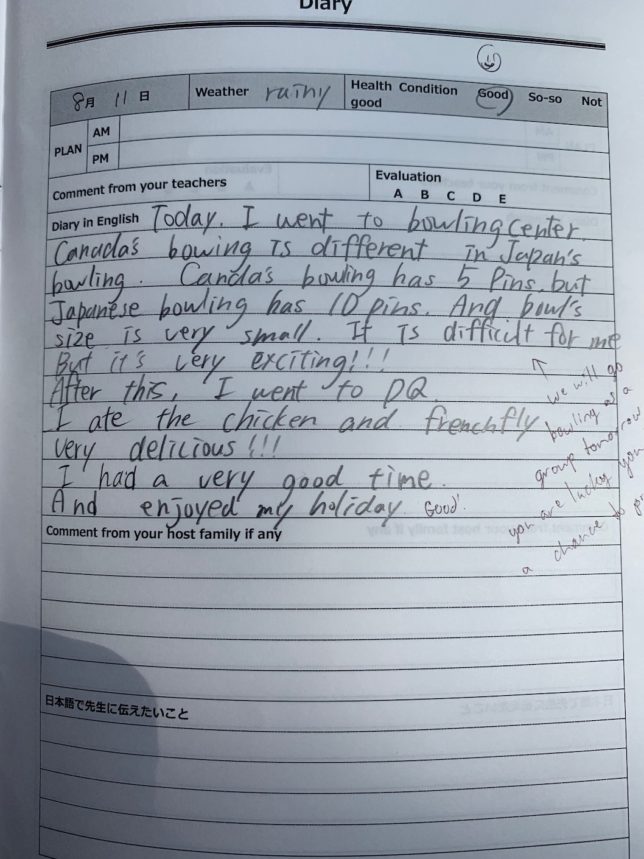 Diary
8月 11日 Weather rainy Health Condition Good So-so Not good
PLAN AM
PM
Comment from your teachers Evaluation
A B C D E
Diary in English Today. I went to bowling center.
Canada's bowing is different in Japan's
bowling. Canda's bowling has 5 pins. but
Japanese bowling has 10 pins. And bowl's
size is very small. It is difficult for me
But it's very exciting!!!
After this, I went to DQ.
I ate the chicken and frenchfly
very delicious!!!
I had a very good time.
And enjoyed my holiday. Good!
we will go
bowling as a
group tomorrow
you are lucky you
a chance to
Comment from your host family if any
日本語で先生に伝えたいこと